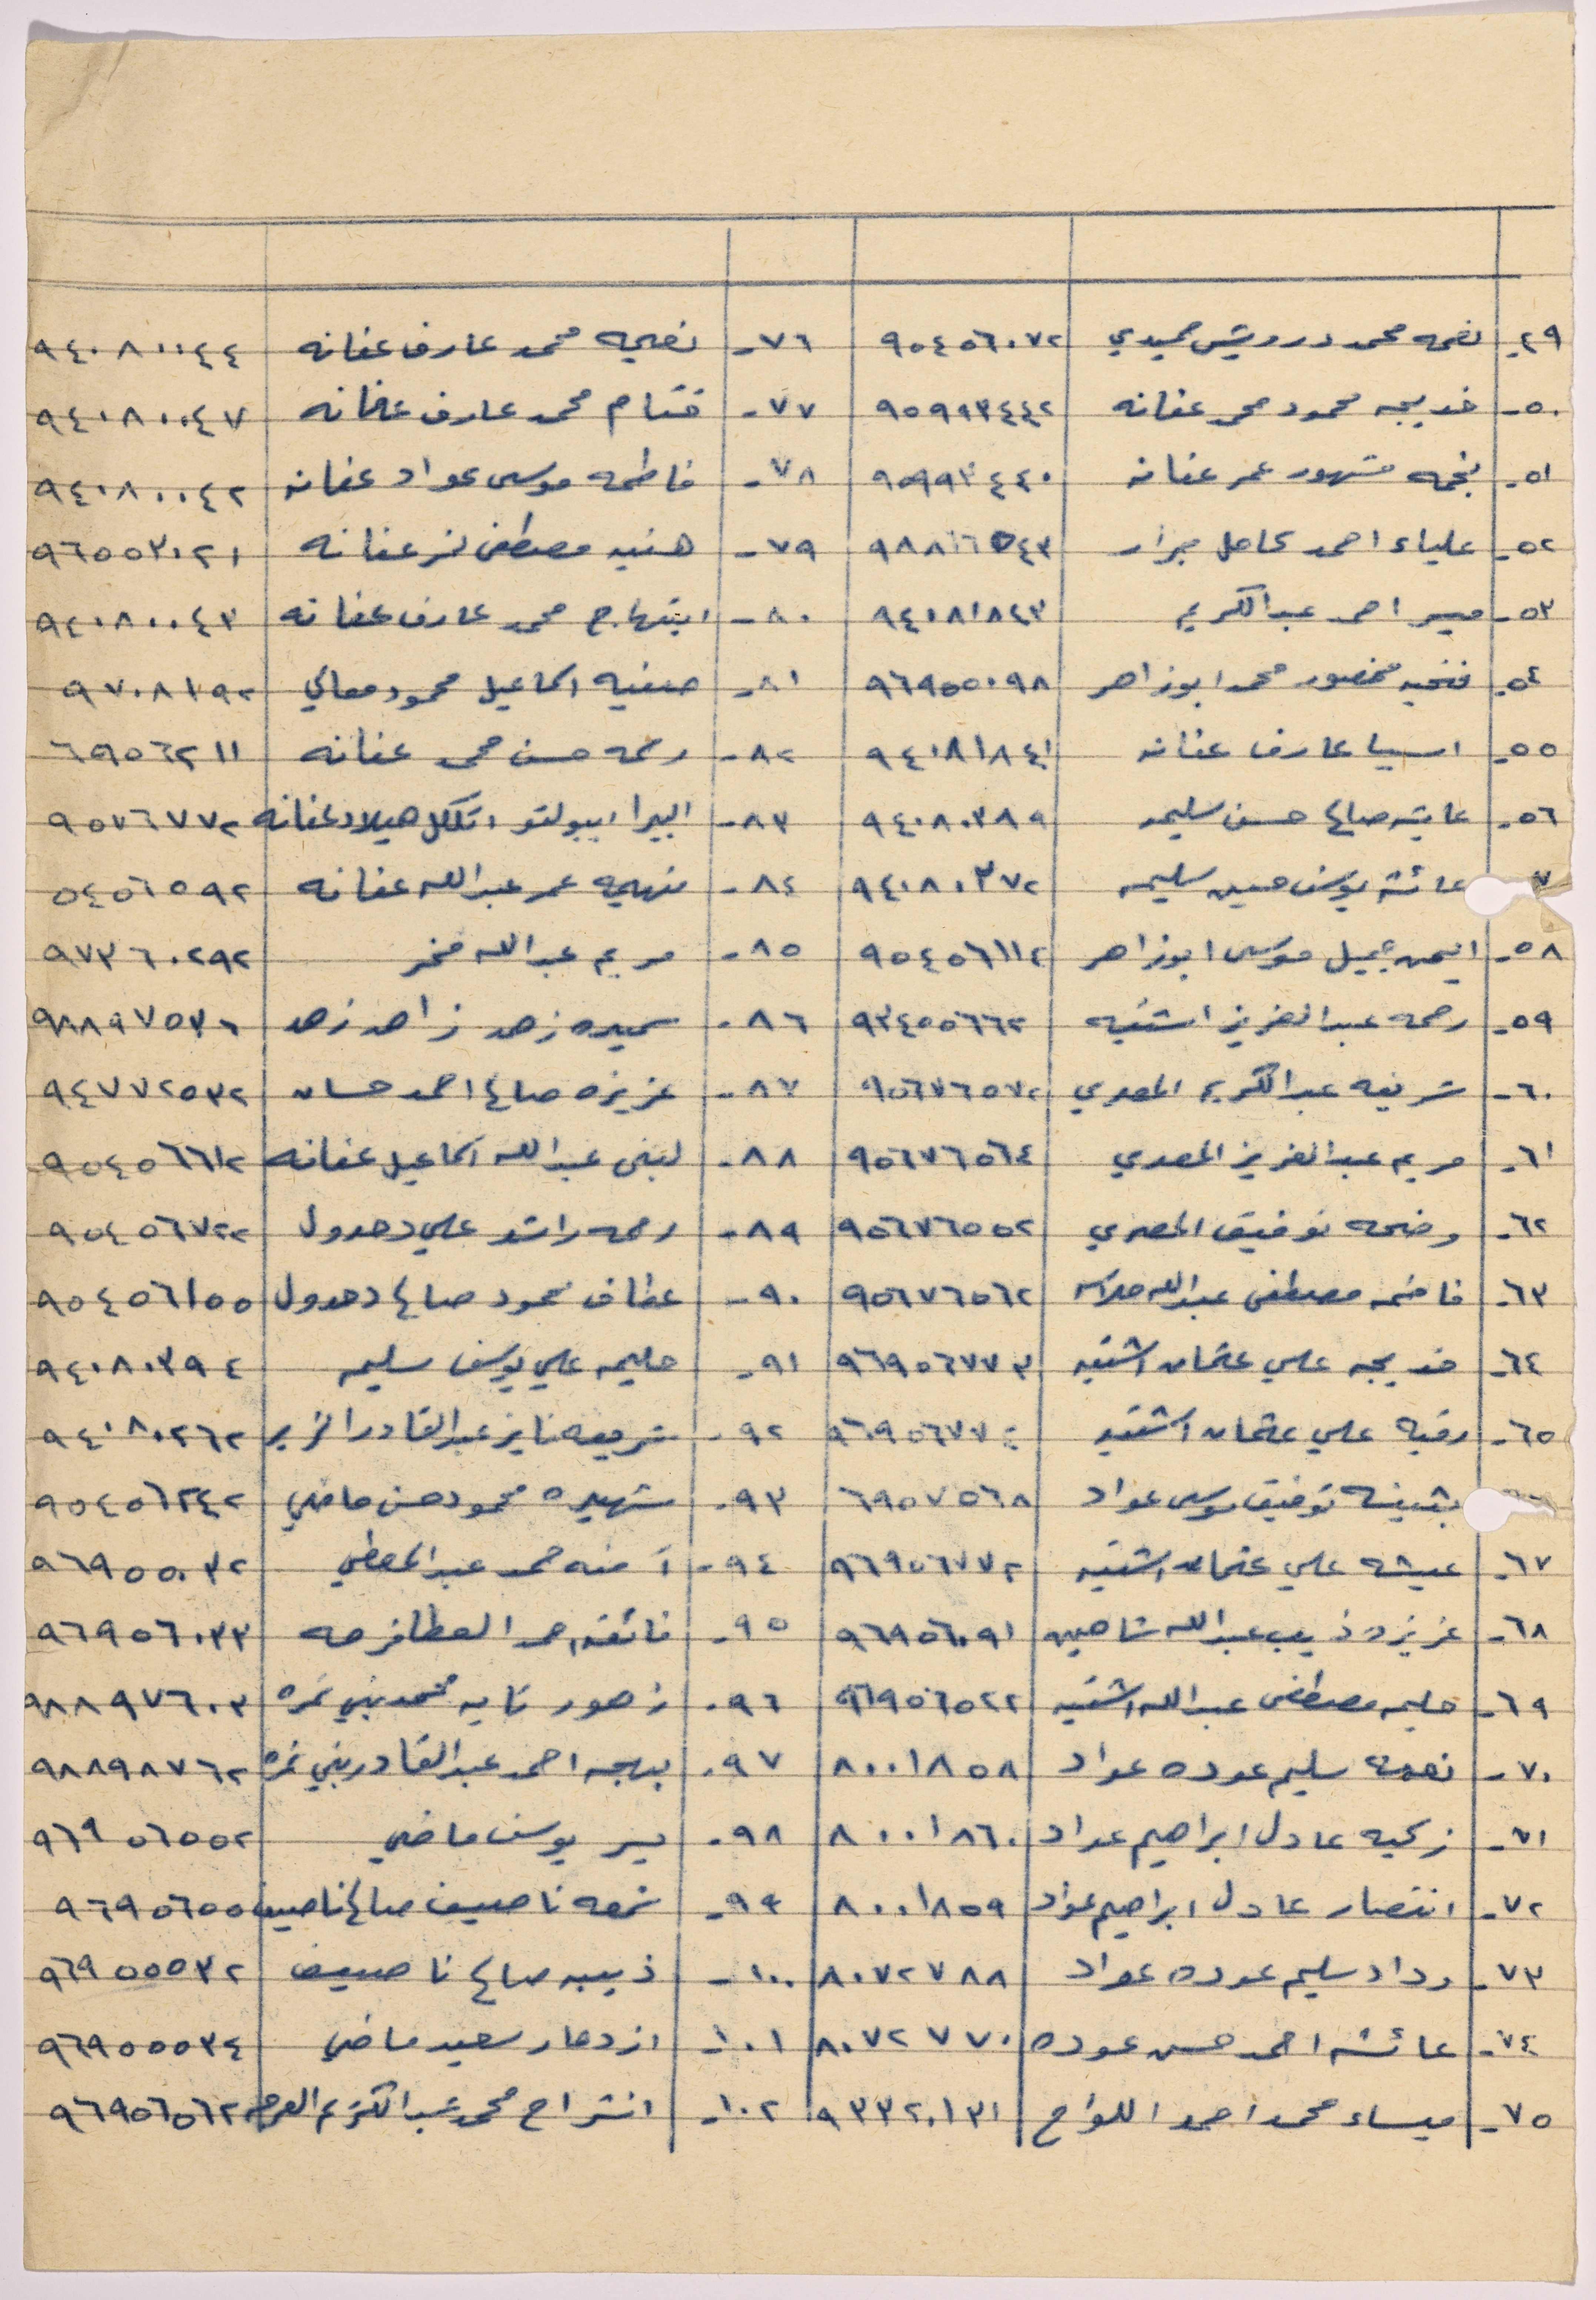 ٤٩- نعمه محمد درويش حميدي ٩٥٤٥٦٠٧٢ ٧٦- نعيمه محمد عارف عفانه ٩٤٠٨٠٠٤٤
٥٠- خديجه محمود محمد عفانه ٩٥٩٩٣٤٤٢ ٧٧- ختام محمد عارف عفانه ٩٤٠٨٠٠٤٧
٥١- نجمه مشهور عمر عفانه ٩٥٩٩٣٤٤٠ ٧٨- فاطمه موسى عواد عفانه ٩٤٠٨٠٠٤٢
٥٢- علياء احمد كامل جرار ٩٨٨١٦٥٤٣ ٧٩- هنيه مصطفى نمر عفانه ٩٦٥٥٣٠٢١
٥٣- ميسر احمد عبدالكريم ٩٤٠٨١٨٤٣ ٨٠- ابتهاج محمد عارف عفانه ٩٤٠٨٠٠٤٣
٥٤- فتحيه منصور محمد ابوزاهر ٩٦٩٥٥٠٩٨ ٨١- صفيه اسماعيل محمود معالي ٩٧٠٨١٩٢
٥٥- اسيا عارف عفانه ٩٤٠٨١٨٤١ ٨٢- رحمه حسن محمد عفانه ٦٩٥٦٢١١
٥٦- عايشه صالح حسن سليمه ٩٤٠٨٠٣٨٩ ٨٣- البيرا ايبولتو ميلاد عفانه ٩٥٧٦٧٧٢
٧ عائشة يوسف حسين سليمه ٩٤٠٨٠٣٧٢ ٨٤- فهيمه عمر عبدالله عفانه ٥٤٥٦٥٩٢
٥٨- ايمن جميل موسى ابوزاهر ٩٥٤٥٦١١٢ ٨٥- مريم عبدالله فخر ٩٧٣٦٠٢٩٢
٥٩- رحمه عبدالعزيز اشتيه ٩٣٤٥٥٦٦٢ ٨٦- سميره زهد زاهد زهد ٩٨٨٩٧٥٣٦
٦٠- شريفه عبدالكريم المصري ٩٥٦٧٦٥٧٢ ٨٧- عزيزه صالح احمد حسان ٩٤٧٧٢٥٣٢
٦١- مريم عبدالعزيز المصري ٩٥٦٧٦٥٦٤ ٨٨- لبنى عبدالله اسماعيل عفانه ٩٥٤٥٦٦١٢
٦٢- وضحه توفيق المصري ٩٥٦٧٦٥٥٢ ٨٩- رحمه راشد علي دهدول ٩٥٤٥٦٧٢٢
٦٣- فاطمه مصطفى عبدالله ٩٥٦٧٦٥٦٢ ٩٠- عفاف محمود صالح دهدول ٩٥٤٥٦١٥٥
٦٤- خديجه علي عثمان اشتيه ٩٦٩٥٦٧٧٣ ٩١- حليمه علي يوسف سليمه ٩٤٠٨٠٣٩٤
٦٥- رقيه علي عثمان اشتيه ٩٦٩٥٦٧٧٤ ٩٢- شريفه فايز عبدالقادر الزير ٩٤٠٨٠٢٦٢
بثينه توفيق موسى عواد ٦٩٥٧٥٦٨ ٩٣- شهيره محمود حسن ماضي ٩٥٤٥٦٢٤٢
٦٧- عيشه علي عثمان اشتيه ٩٦٩٥٦٧٧٢ ٩٤- آمنه حمد عبدالمعطي ٩٦٩٥٥٠٣٢
٦٨- عزيزه ذيب عبدالله شاهين ٩٦٩٥٦٠٩١ ٩٥- فائقه حمد العطا فرحه ٩٦٩٥٦٠٣٣
٦٩- حليمه مصطفى عبدالله اشتيه ٩٦٩٥٦٥٢٢ ٩٦- زهور نايه محمد بني نمره ٩٨٨٩٧٦٠٣
٧٠- نعمة سليم عوده عواد ٨٠٠١٨٥٨ ٩٧- بهجه احمد عبدالقادر بني نمره ٩٨٨٩٨٧٦٢
٧١- زكيه عادل ابراهيم عواد ٨٠٠١٨٦٠ ٩٨- يسر يوسف ماضي ٩٦٩٥٦٥٥٢
٧٢- انتصار عادل ابراهيم عواد ٨٠٠١٨٥٩ ٩٩- شمعه ناصيف صالح ناصيف ٩٦٩٥٦٥٥
٧٣- وداد سليم عوده عواد ٨٠٧٢٧٨٨ ١٠٠- ذيبه صالح ناصيف ٩٦٩٥٥٥٣٢
٧٤- عائشه احمد حسن عوده ٨٠٧٢٧٧٠ ١٠١- ازدهار سعيد ماضي ٩٦٩٥٥٥٣٤
٧٥- ميساء محمد احمد اللواح ٩٣٣٢٠١٣١ ١٠٢- انشراح محمد عبدالكريم ٩٦٩٥٦٥٦٢